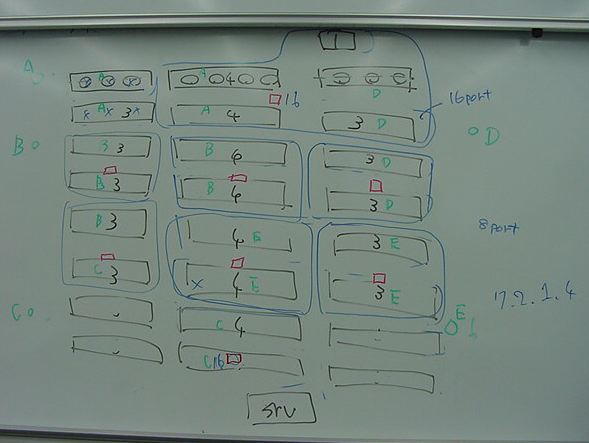 1
A
A 4
D
16
16port
A 3
A 4
3 D
B
D
3 3
B 6
3 D
B 3
B 6
3 D
B 3
4 E
3 E
8port
C 3
x 4 E
3 E
17.2.1.4
C
C 4
E
C16
srv